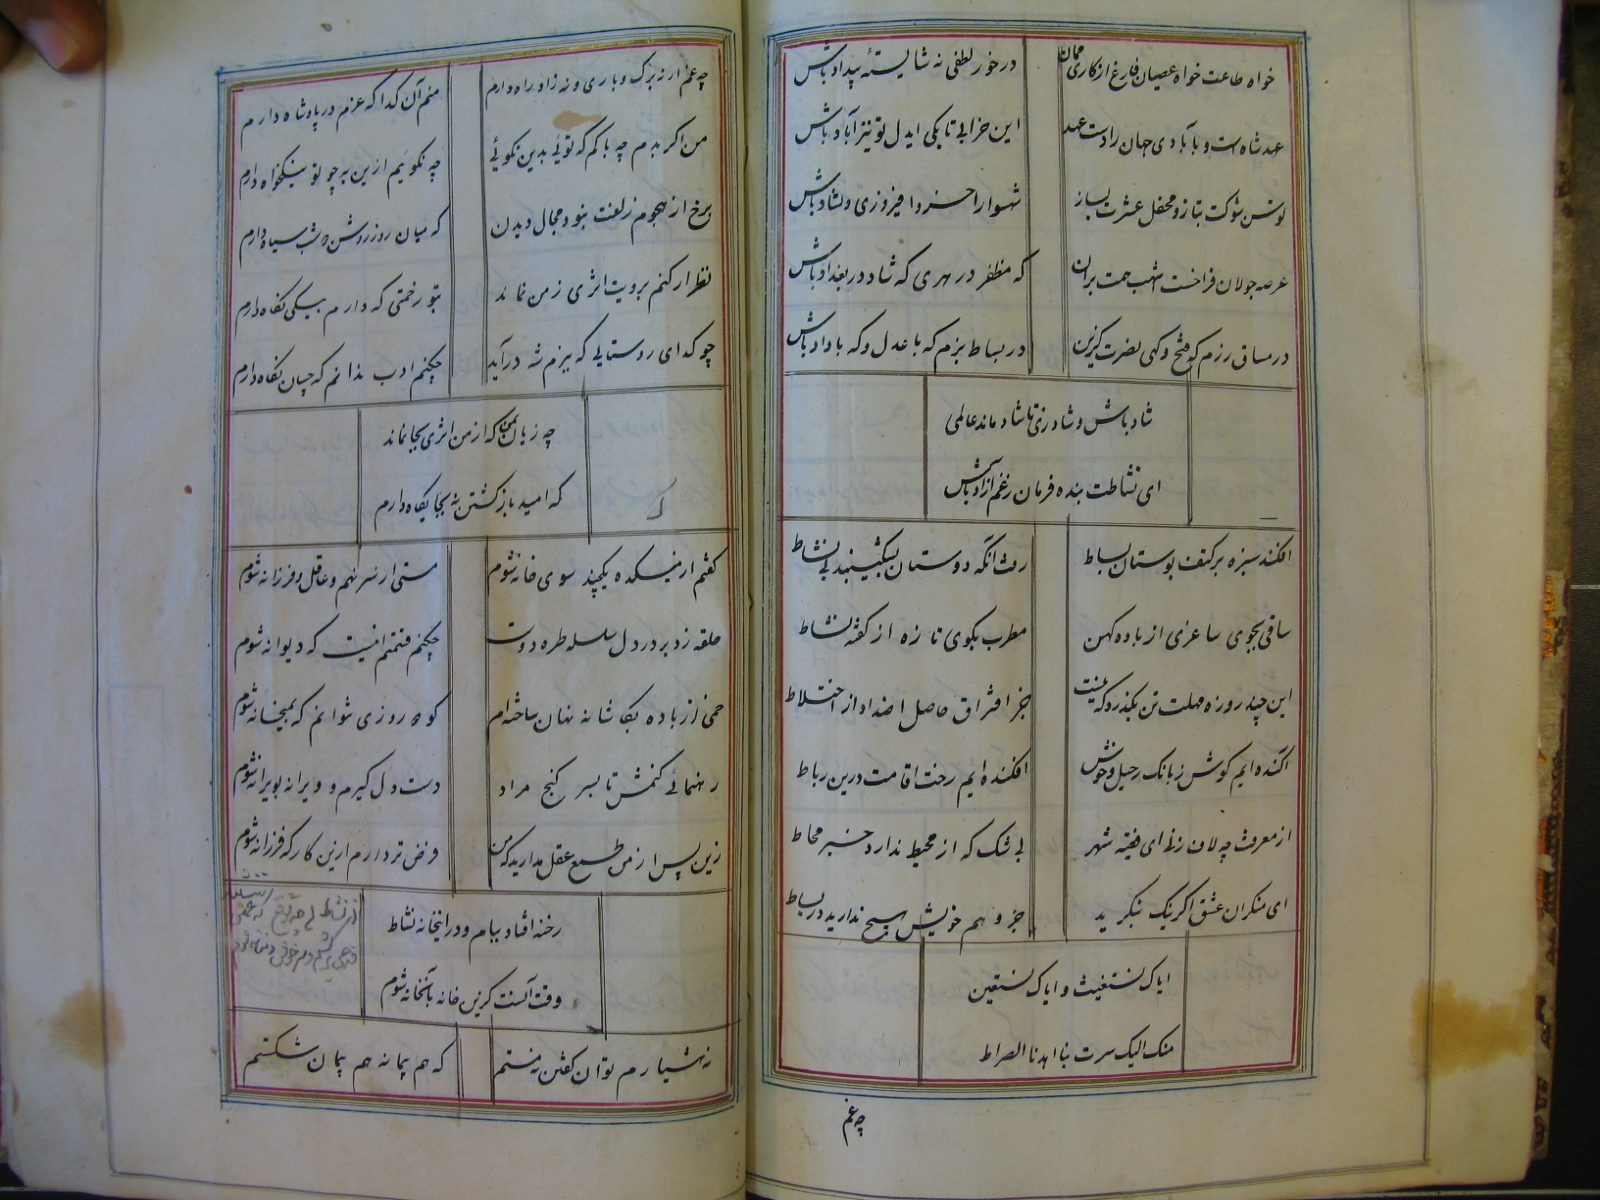 خواه طاعت خواه عصیان فارغ از کاری ممان
در خور لطفی نه شایستهٔ بیداد باش
عهد شاه است و بآبادی جهان را دست عهد
این خرابی تا بکی ایدل تو نیز آباد باش
توسن شوکت بتاز و محفل عشرت بساز
شهسوارا خسروا فیروزی و دلشاد باش
عرصه جولان فراخست اشهب همت بران
که مظفر در هری که شاد در بغداد باش
در مساق رزم که فتح و کهی نصرت کزین
در بساط بزم که با عدل و که با داد باش
شاد باش و شاد زی تا شاد ماند عالمی
ای نشاطت بنده فرمان ز غم آزاد باش
افکند سبزه بر کتف بوستان بساط
زشت آنکه دوستان بنشینند بی نشاط
ساقی بجوی ساغری از باده کهن
مطرب بکوی تازه از کفته نشاط
این چند روزه مهلت تن بکذرد که نیست
جز افتراق حاصل اضداد از اختلاط
آکنده ایم کوش ز بانک رحیل و خوش
افکنده ایم رخت اقامت درین رباط
از معرفت چه لاف زنی ای فقیه شهر
بی شک که از محیط ندارد خبر محاط
ای منکران عشق اگر نیک بنکرید
جز وهم خویش هیچ ندارید در بساط
ایاک نستغیث و ایاک نستعین
منک الیک سرت بنا اهدنا الصراط
چه غم
چه غم ار نه برک و باری و نه زاد راه دارم
منم آن کدا که عزم در پادشاه دارم
من اکر بدم چه باکم که توئی بدین نکوئی
چه نکویم ار ازین به چو تو نیکخواه دارم
برخ از هجوم زلفت نبود مجال دیدن
که میان روز روشن شب سیاه دارم
نظر ار کنم برویت اثری ز من نماند
بتو رخمتی که دارم بیکی نکاه دارم
چو کدای روستایی که ببزم شه درآید
چکنم ادب ندانم که چسان نکاه دارم
چه زیان بمن که از من اثری بجا نماند
که امید بازکشتن به بجایکاه دارم
کفتم از میکده یکچند سوی خانه شوم
مستی از سر نهم و عاقل و فرزانه شوم
حلقه زد بر در دل سلسله طره دوست
چکنم قسمتم اینست که دیوانه شوم
خمی از باده بکاشانه نهان ساخته ام
کو چه روزی نتوانم که بمیخانه شوم
رهنمائی کنمش تا بسر کنج مراد
دست دل کیرم و ویرانه بویرانه شوم
زین پس از من طمع عقل مدارید که من
فرض تر دارم ازین کار که فرزانه شوم
رخنه افتاد ببام و در اینخانه نشاط
وقت آنست کزین خانه بآنخانه شوم
نه هشیارم توان کفتن نه مستم
که هم پیمانه هم پیمان شکستم